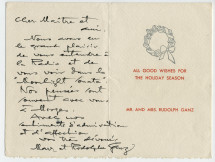 Cher Maître et
ami.
Nous avons eu
le grand plaisir
de vous entendre à
la Radio et de
vous voir dans le
"moonlight Sonata"
Nos pensées sont
souvent avec vous
Avec nos
sentiments d'admiration
et d'affection
vos très dévoués
Mary et Rudolph Ganz
ALL GOOD WISHES FOR
THE HOLIDAY SEASON
MR. AND MRS. RUDOLPH GANZ